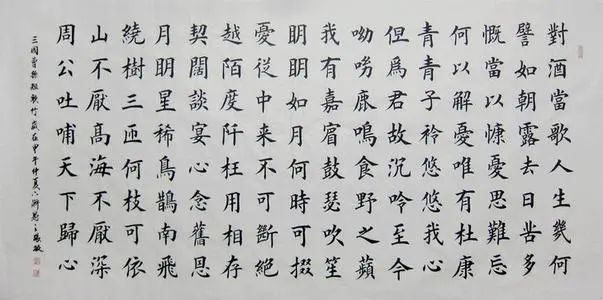 對酒當歌人生幾何
譬如朝露去日苦多
慨當以慷憂思難忘
何以解憂唯有杜康
青青子衿悠悠我心
但爲君故沉吟至今
呦呦鹿鳴食野之蘋
我有嘉賓鼓瑟吹笙
明明如月何時可掇
憂從中来不可斷絕
越陌度阡枉用相存
契闊談宴心念舊恩
月明星稀烏鵲南飛
繞樹三匝何枝可依
山不厭高海不厭深
周公吐哺天下歸心
三國曹操短歌行歲在甲午仲夏